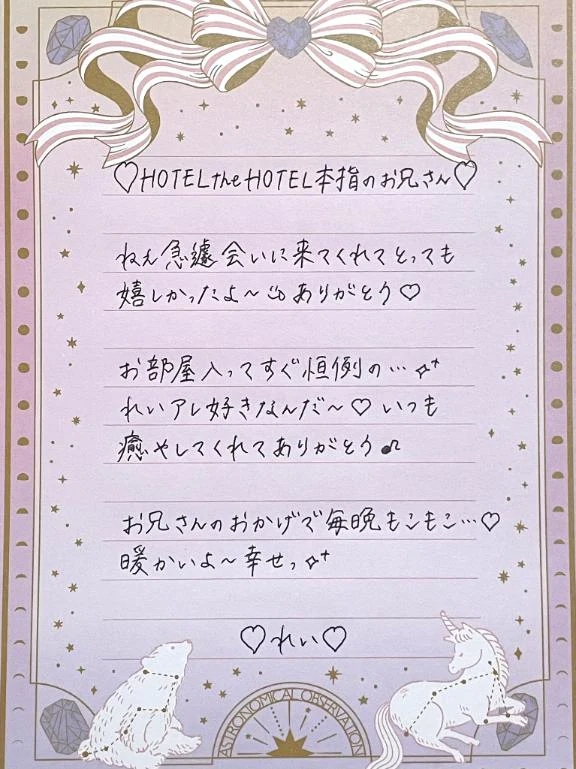 ♡HOTEL the HOTEL本指のお兄さん♡
ねぇ急遽会いに来てくれてとっても
嬉しかったよ〜ありがとう♡
お部屋入ってすぐ恒例の…✧⁺
れいアレ好きなんだ〜♡いつも
癒やしてくれてありがとう♪
お兄さんのおかげで毎晩もこもこ…♡
暖かいよ〜幸せっ✧⁺
♡れい♡
ASTRONOMICAL OBSERVATION